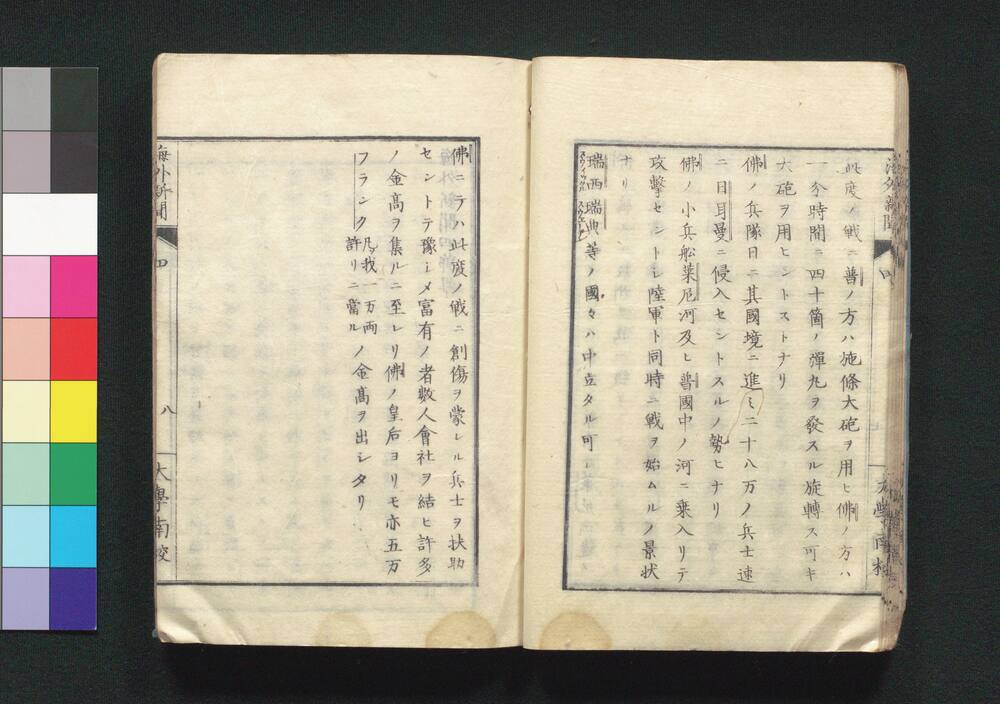 此度ノ戦ニ普ノ方ハ施條大砲ヲ用ヒ佛ノ方ハ
一分時間ニ四十箇ノ彈丸ヲ發スル旋轉ス可キ
大砲ヲ用ヒントストナリ
佛ノ兵隊日ニ其國境ニ進ミ二十八万ノ兵士速
ニ日耳曼ニ侵入セントスルノ勢ヒナリ
佛ノ小兵舩莱尼河及ヒ普國中ノ河ニ乗入リテ
攻撃セントシ陸軍ト同時ニ戦ヲ始ムルノ景状
ナリ
瑞西瑞典等ノ國々ハ中立タル可シ
海外新聞
四
大學南校
佛ニテハ此度ノ戦ニ創傷ヲ蒙レル兵士ヲ扶助
セントテ豫シメ富有ノ者数人會社ヲ結ヒ許多
ノ金髙ヲ集ルニ至レリ佛ノ皇后ヨリモ亦五万
フランク凡ソ我一万両許リニ當ルノ金髙ヲ出シタリ
海外新聞
四
八
大學南校